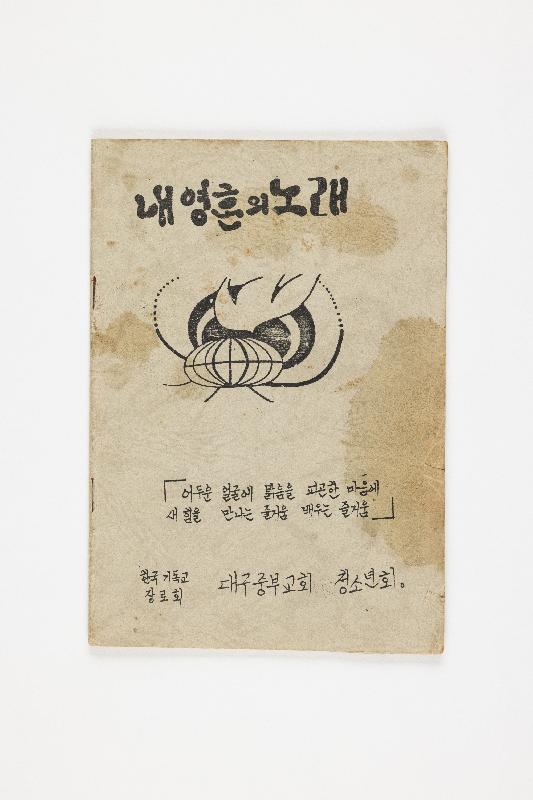 내 영혼의 노래
「어두운 얼굴에 밝음을 피곤한 마음에
새 힘을 만나는 즐거움 배우는 즐거움」
한국 기독교
장로회
대구중부교회 청소년회。